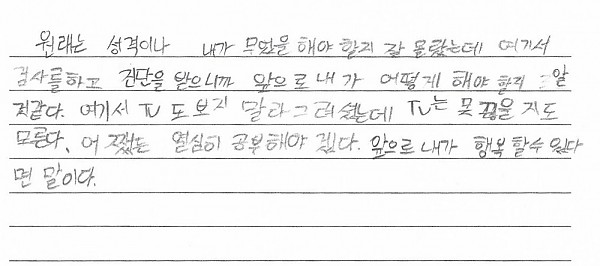 원래는 성격이나 내가 무엇을 해야 할지 잘 몰랐는데 여기서
검사를하고 진단을 받으니까 앞으로 내가 어떻게 해야 할지 알
것같다. 여기서 TV 또 보지 말라그러셨는데 TV는 못 끊을 지도
모른다, 어쨌든 열심히 공부해야 겠다. 앞으로 내가 행복 할수 있다
면 말이다.